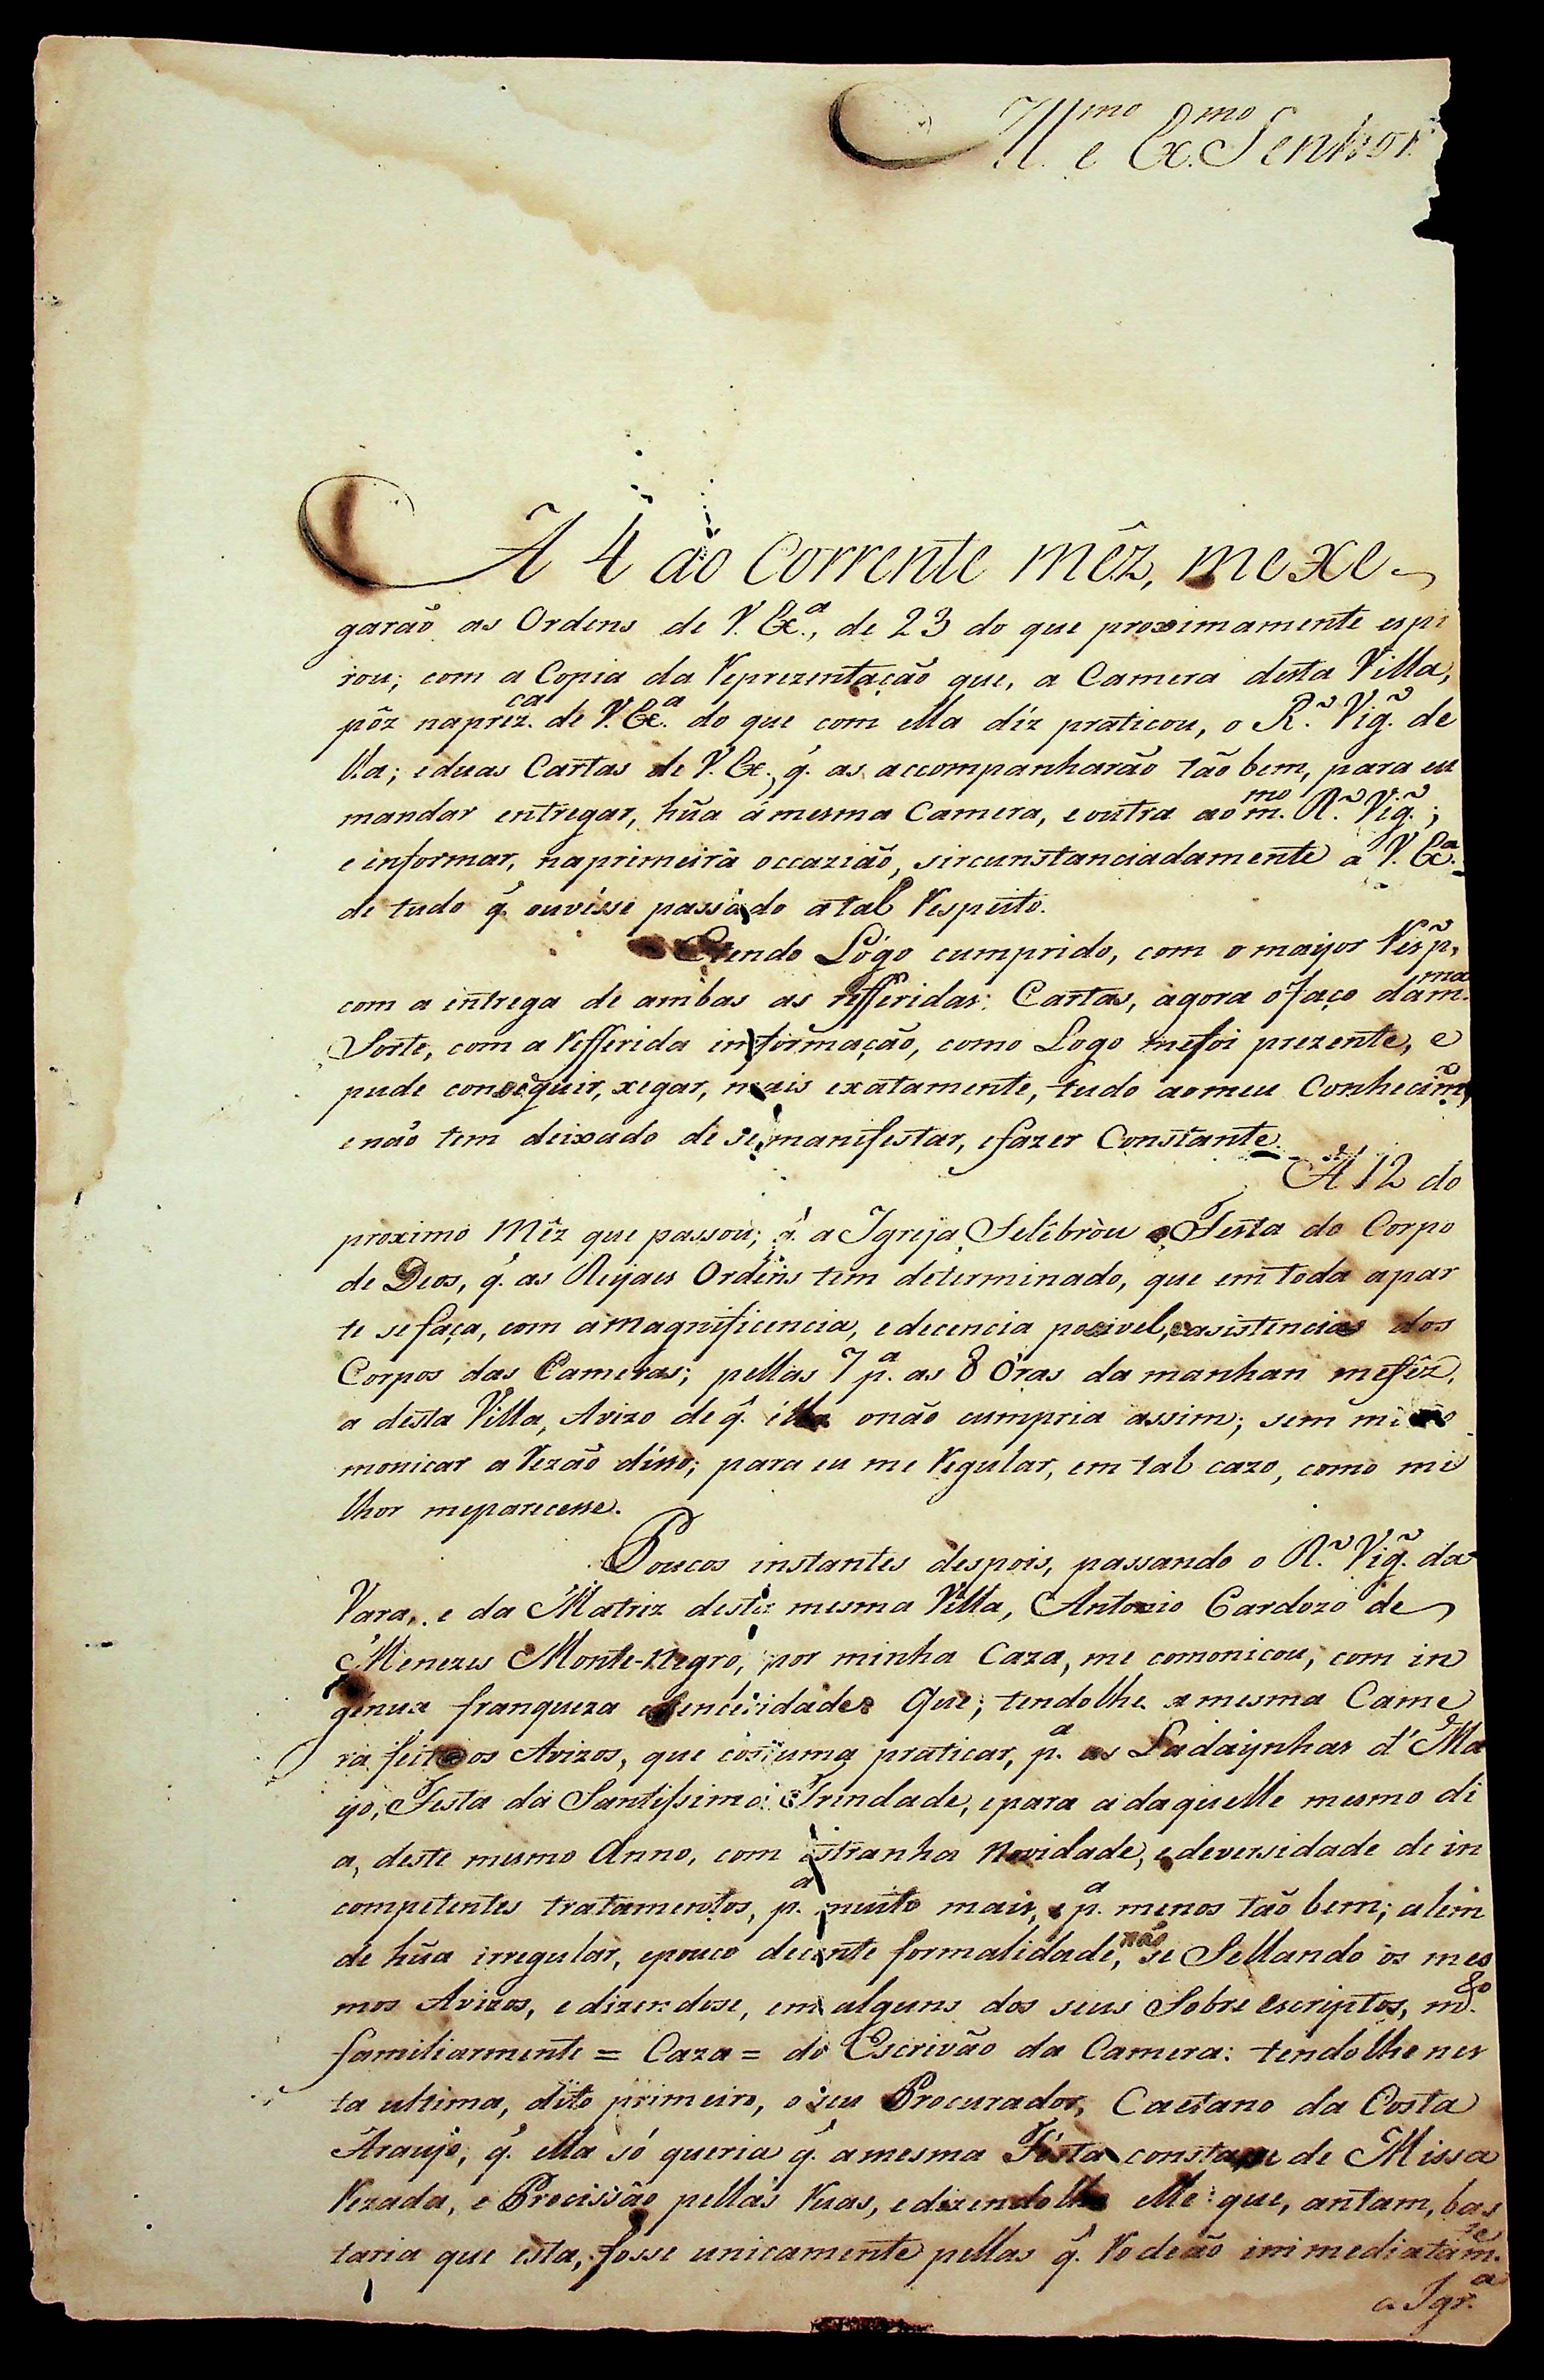 Ill.mo e Ex.mo Senhor
A 4 do Corrente mêz, me xe-
garaõ as Ordens de V. Ex.a, de 23 do que proximamente espi
rou; com a Copia da Reprezentaçaõ que, a Camera desta Villa,
pôz naprez.ca de V. Ex.a do que com ella díz praticou, o R.o Vig.o de
lla; eduas Cartas de V. Ex., q̃. as accompanharão tão bem, para eu
mandar entregar, hũa ámesma Camera, e outra ao m.mo R.o Vig.o;
e informar, naprimeira occazião, sircunstanciadamente a V. Ex.a
de tudo q̃. ouvésse passado a tal Respeito.
Etendo Lógo cumprido, com o maiyor Resp.o,
com a entrega de ambas as refferidas Cartas, agora ófaço dam.ma
Sorte, com a Refferida informação, como Logo mefoi prezente, e
pude conseguir, xegar, mais exatamente, tudo aomeu Conhecim.o,
enão tem deixado de semanifestar, efazer Constante.
A 12 do
proximo Mêz que passou; q̃. a Igreja Selébròu a Festa do Corpo
de Deos, q̃. as Reyaes Ordens tem determinado, que em toda apar
te sefaça, com amagnificencia, edecencia posivel, easistencias dos
Corpos das Cameras; pellas 7 p.a as 8 Óras da manhan mefêz,
a desta Villa, Avizo de q̃. ella onão cumpria assim; sem me co
monicar a Rezão disso; para eu me Regular, em tal cazo, como mi
lhor meparecesse.
Poucos instantes despois, passando o R.o Vig.o da
Vara, e da Matriz desta mesma Villa, Antonio Cardozo de
Menezes Monte-negro, por minha Caza, me comonicou, com in
genua franqueza esenceridade: Que; tendolhe a mesma Came
ra feito os Avizos, que costuma praticar, p.a as Ladaynhas d'Ma
yo, Festa da Santissima Trindade, epara adaquelle mesmo di
a, deste mesmo Anno, com estranha novidade, edeversidade de in
competentes tratamentos, p.a muito mais, e p.a menos tão bem; alem
de hũa irregular, epouco decente formalidade, não se Sellando os mes
mos Avizos, edizendose, em alguns dos seus Sobre escriptos, m.to
familiarmente = Caza = do Escrivão da Camera: tendolhe nes
ta ultima, dito primeiro, o seu Procurador, Caetano da Costa
Araujo, q̃. ella só queria q̃. amesma Festa constasse de Missa
Rezada, e Procissão pellas Ruas, edizendolhe elle: que, antam, bas
taria que esta, fosse unicamente pellas q̃. Rodeão immediatam.te
a Igr.a